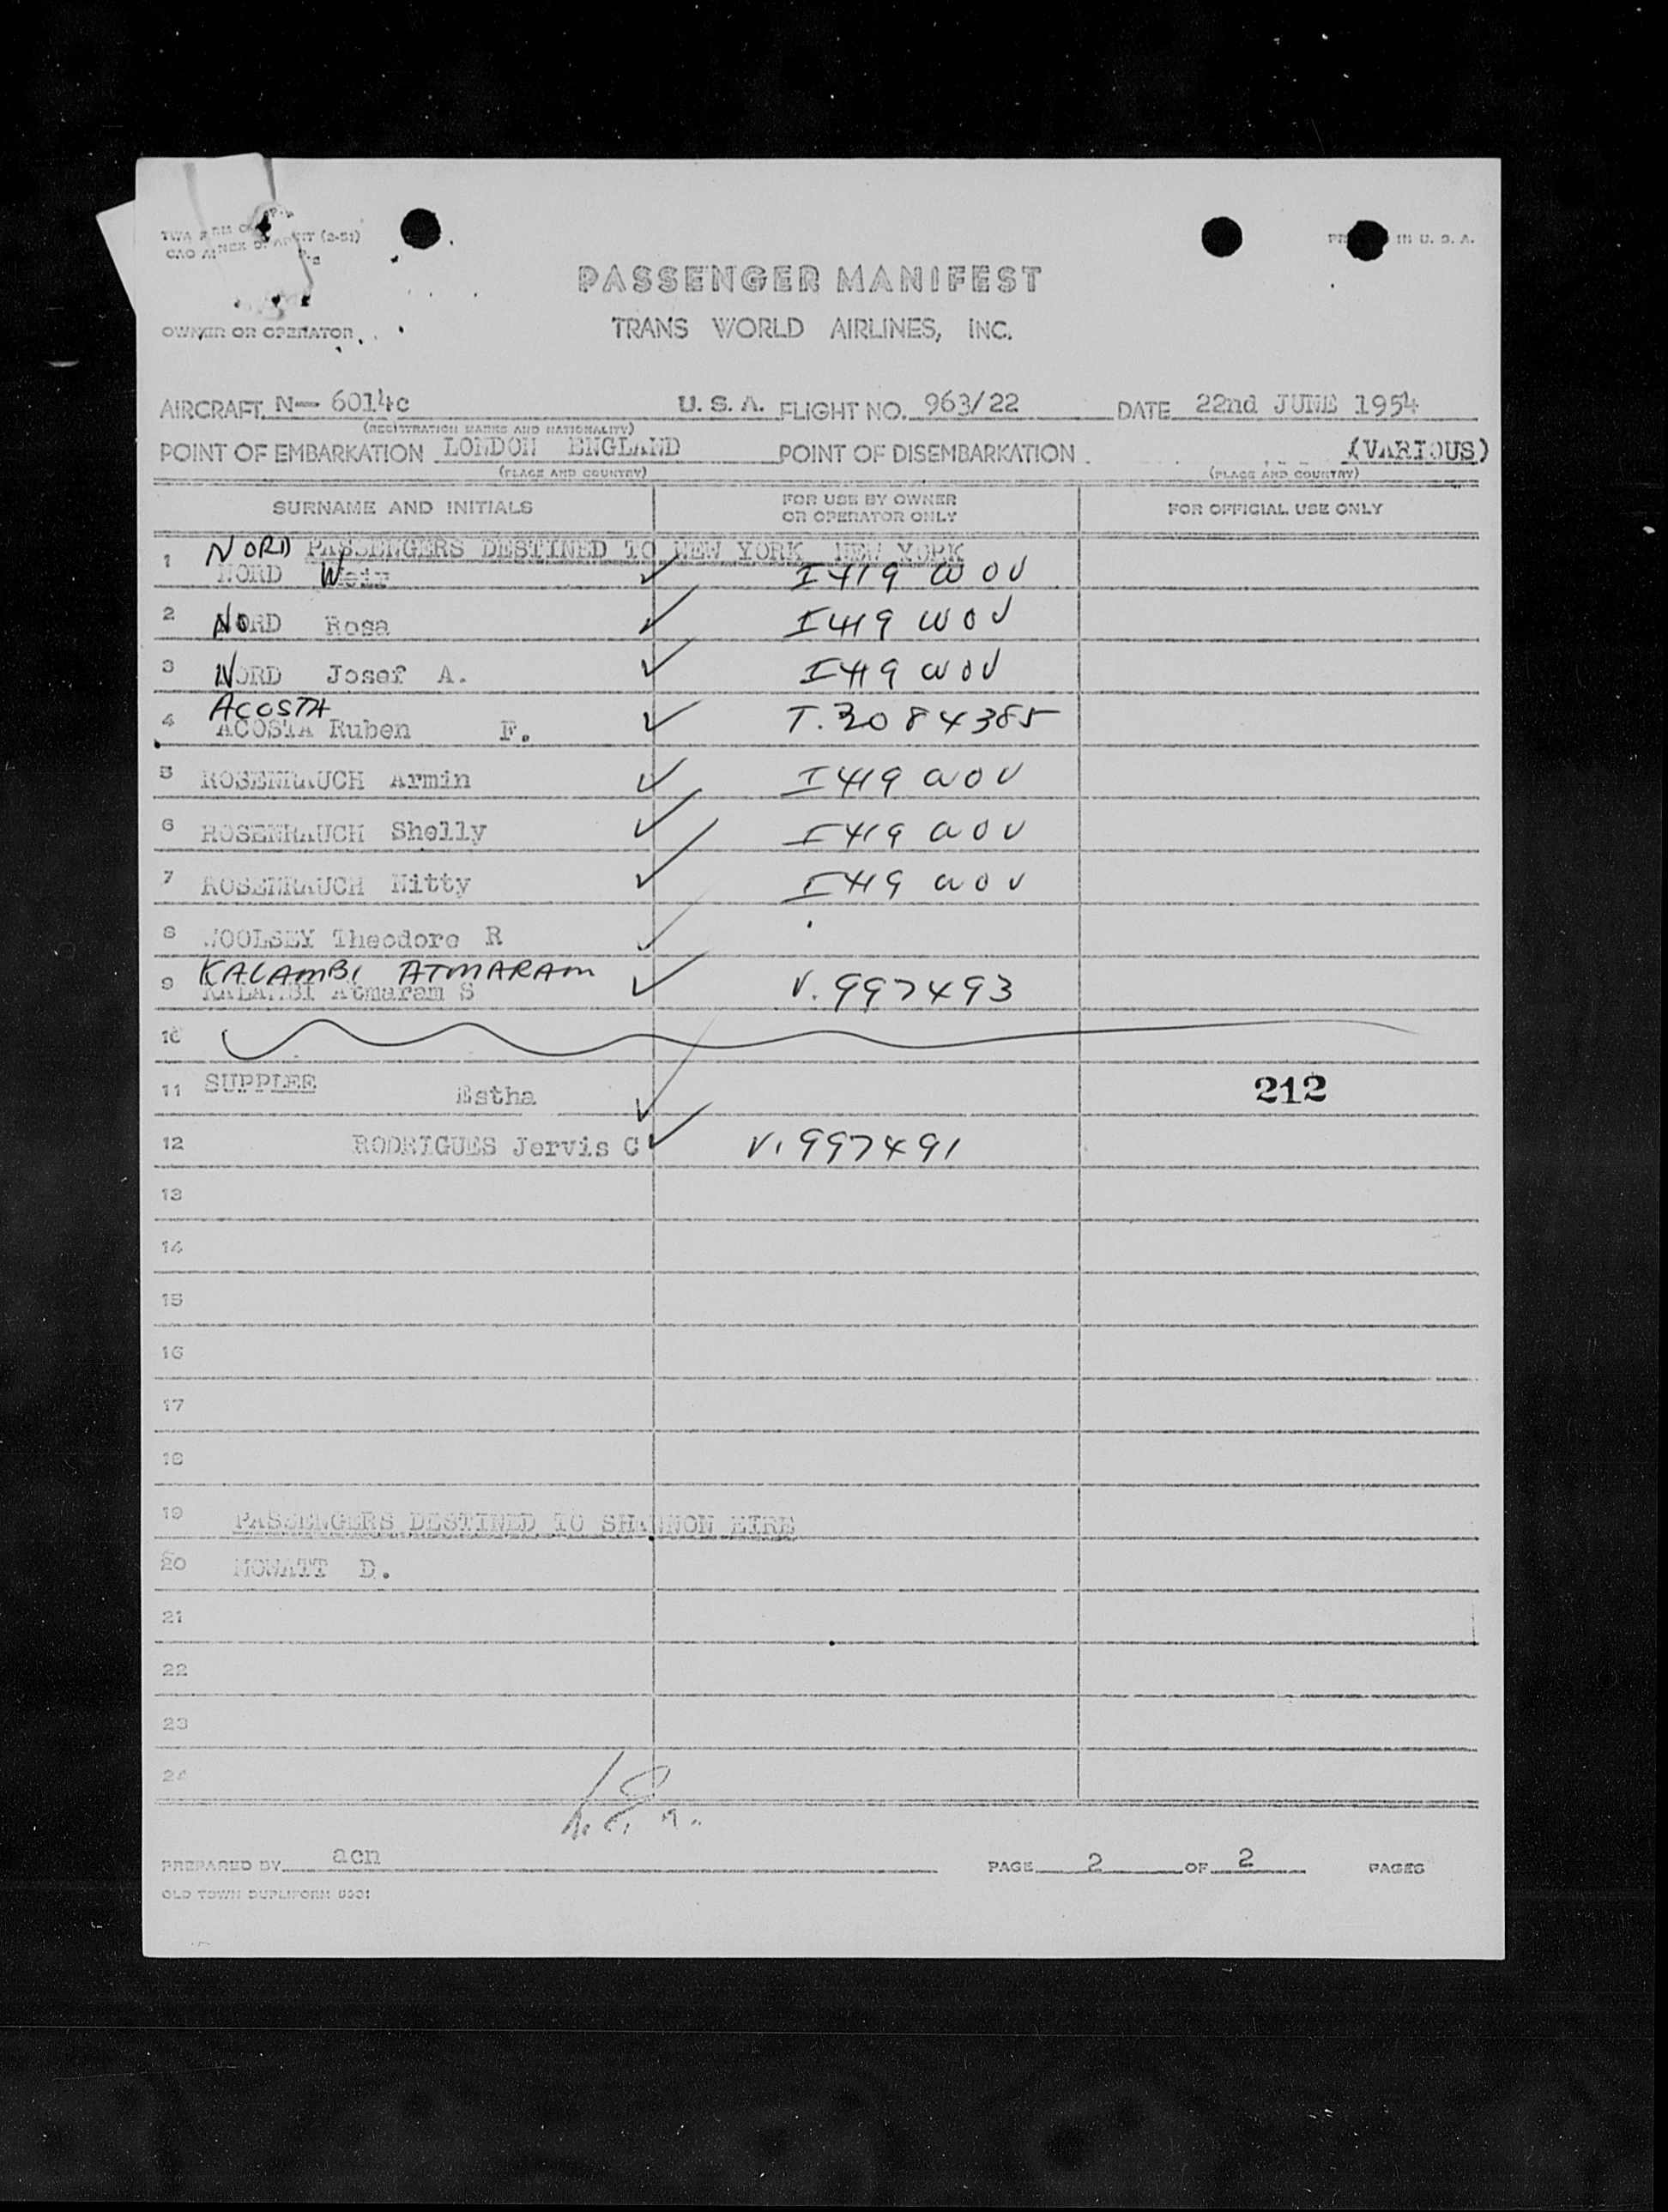 TWA
(2-51)
CAO ANNEX
IN U. S. A.
PASSENGER MANIFEST
OWNER OR OPERATOR
TRANS WORLD AIRLINES, INC.
AIRCRAFT N- 6014c U. S. A. FLIGHT NO. 963/22 DATE 22nd JUNE 1954
(REGISTRATION MARKS AND NATIONALITY)
POINT OF EMBARKATION LONDON ENGLAND POINT OF DISEMBARKATION (VARIOUS)
(PLACE AND COUNTRY) (PLACE AND COUNTRY)
SURNAME AND INITIALS FOR USE BY OWNER OR OPERATOR ONLY FOR OFFICIAL USE ONLY
NORD PASSENGERS DESTINED TO NEW YORK NEW YORK
1 NORD ✓ I 419 WOV
2 NORD Rosa ✓ I 419 WOV
3 NORD Josef A. ✓ I 419 WOV
ACOSTA
4 ACOSTA Ruben F. ✓ T. 3084385
5 ROSENRAUCH Armin ✓ I 419 WOV
6 ROSENRAUCH Shelly ✓ I 419 WOV
7 ROSENRAUCH Nitty ✓ I 419 WOV
8 WOOLSEY Theodore R ✓
KALAMBI ATMARAM
9 KALAMBI Atmaram S ✓ V. 997493
10
11 SUPPLEE Estha ✓ 212
12 RODRIGUES Jervis C ✓ V. 997491
13
14
15
16
17
18
19 PASSENGERS DESTINED TO SHANNON EIRE
20 MOWATT D.
21
22
23
24
PREPARED BY acn PAGE 2 OF 2 PAGES
OLD TOWN DUPLIFORM